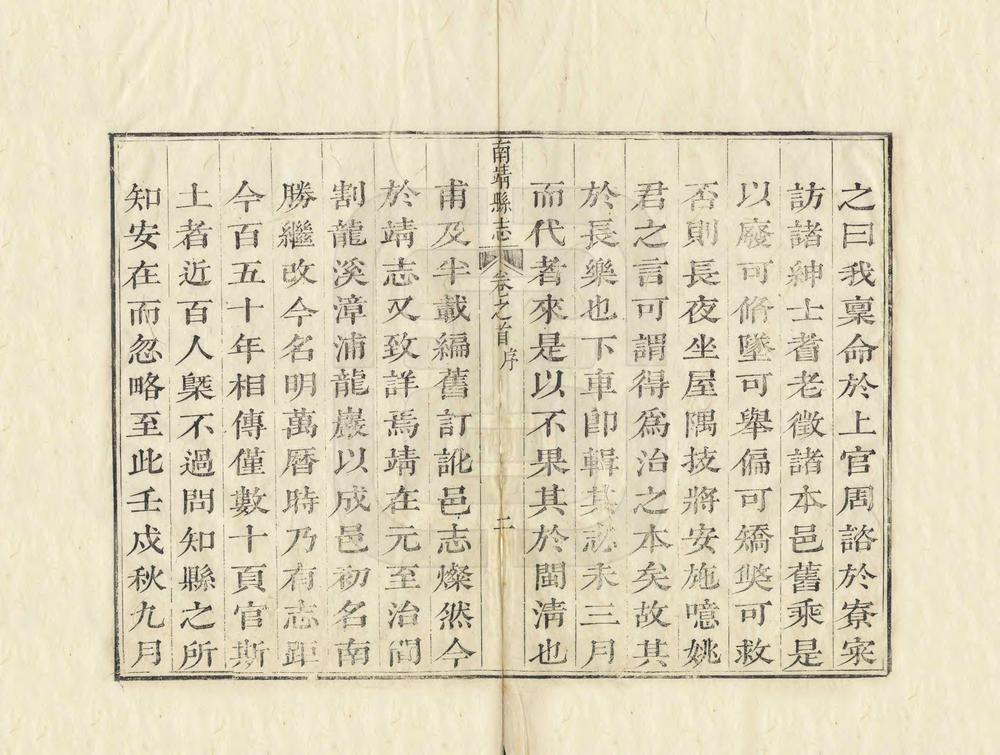 之曰我稟命於上官周諮於寮寀
訪諸紳士耆老徵諸本邑舊乘是
以廢可脩墜可舉偏可矯獘可救
否則長夜坐屋隅技將安施噫姚
君之言可謂得爲治之本矣故其
於長樂也下車卽輯其志未三月
而代者來是以不果其於閩淸也
南靖縣志
卷之首
序
二
甫及半載編舊訂訛邑志燦然今
於靖志又致詳焉靖在元至治間
割龍溪漳浦龍巖以成邑初名南
勝繼改今名明萬曆時乃有志距
今百五十年相傳僅數十頁官斯
土者近百人槩不過問知縣之所
知安在而忽略至此壬戍秋九月